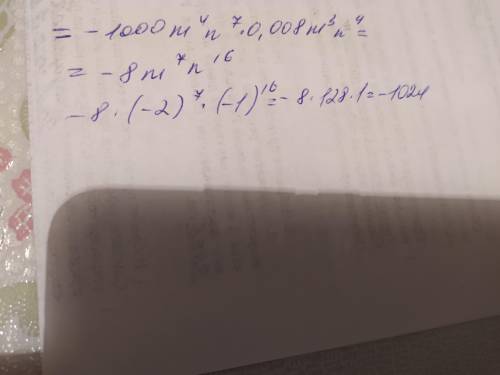 = -1000m⁴n⁷·0,008m³n⁴=
= -8m⁷n¹⁶
-8·(-2)⁷·(-1)¹⁶=-8·128·1=-1024